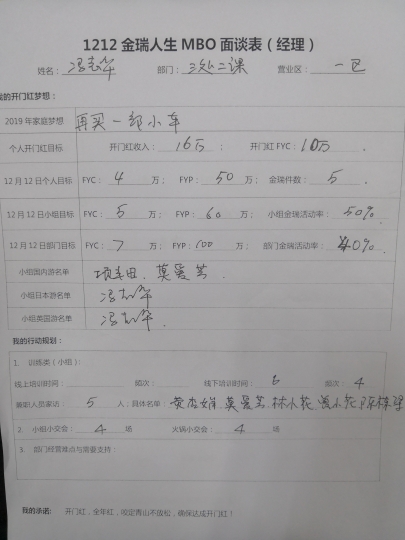 1212金瑞人生MBO面谈表（经理）
姓名： 冯志华 部门： 三处二课 营业区： 一区
我的开门红梦想：
2019年家庭梦想 再买一部小车
个人开门红目标 开门红收入： 16万 ； 开门红FYC： 10万 。
12月12日个人目标 FYC： 4 万； FYP： 50 万； 金瑞件数： 5 。
12月12日小组目标 FYC： 5 万； FYP： 60 万； 小组金瑞活动率： 50% 。
12月12日部门目标 FYC： 7 万； FYP： 100 万； 部门金瑞活动率： 40% 。
小组国内游名单 莫爱芳.
小组日本游名单 冯志华
小组美国游名单 冯志华.
我的行动规划：
1. 训练类（小组）：
线上培训时间： 频次： 线下培训时间： 6 频次： 4
兼职人员家访： 5 人；具体名单： 莫爱芳 林小花
2. 小组小交会： 4 场 火锅小交会： 4 场
3. 部门经营难点与需要支持：
我的承诺： 开门红，全年红，咬定青山不放松，确保达成开门红！